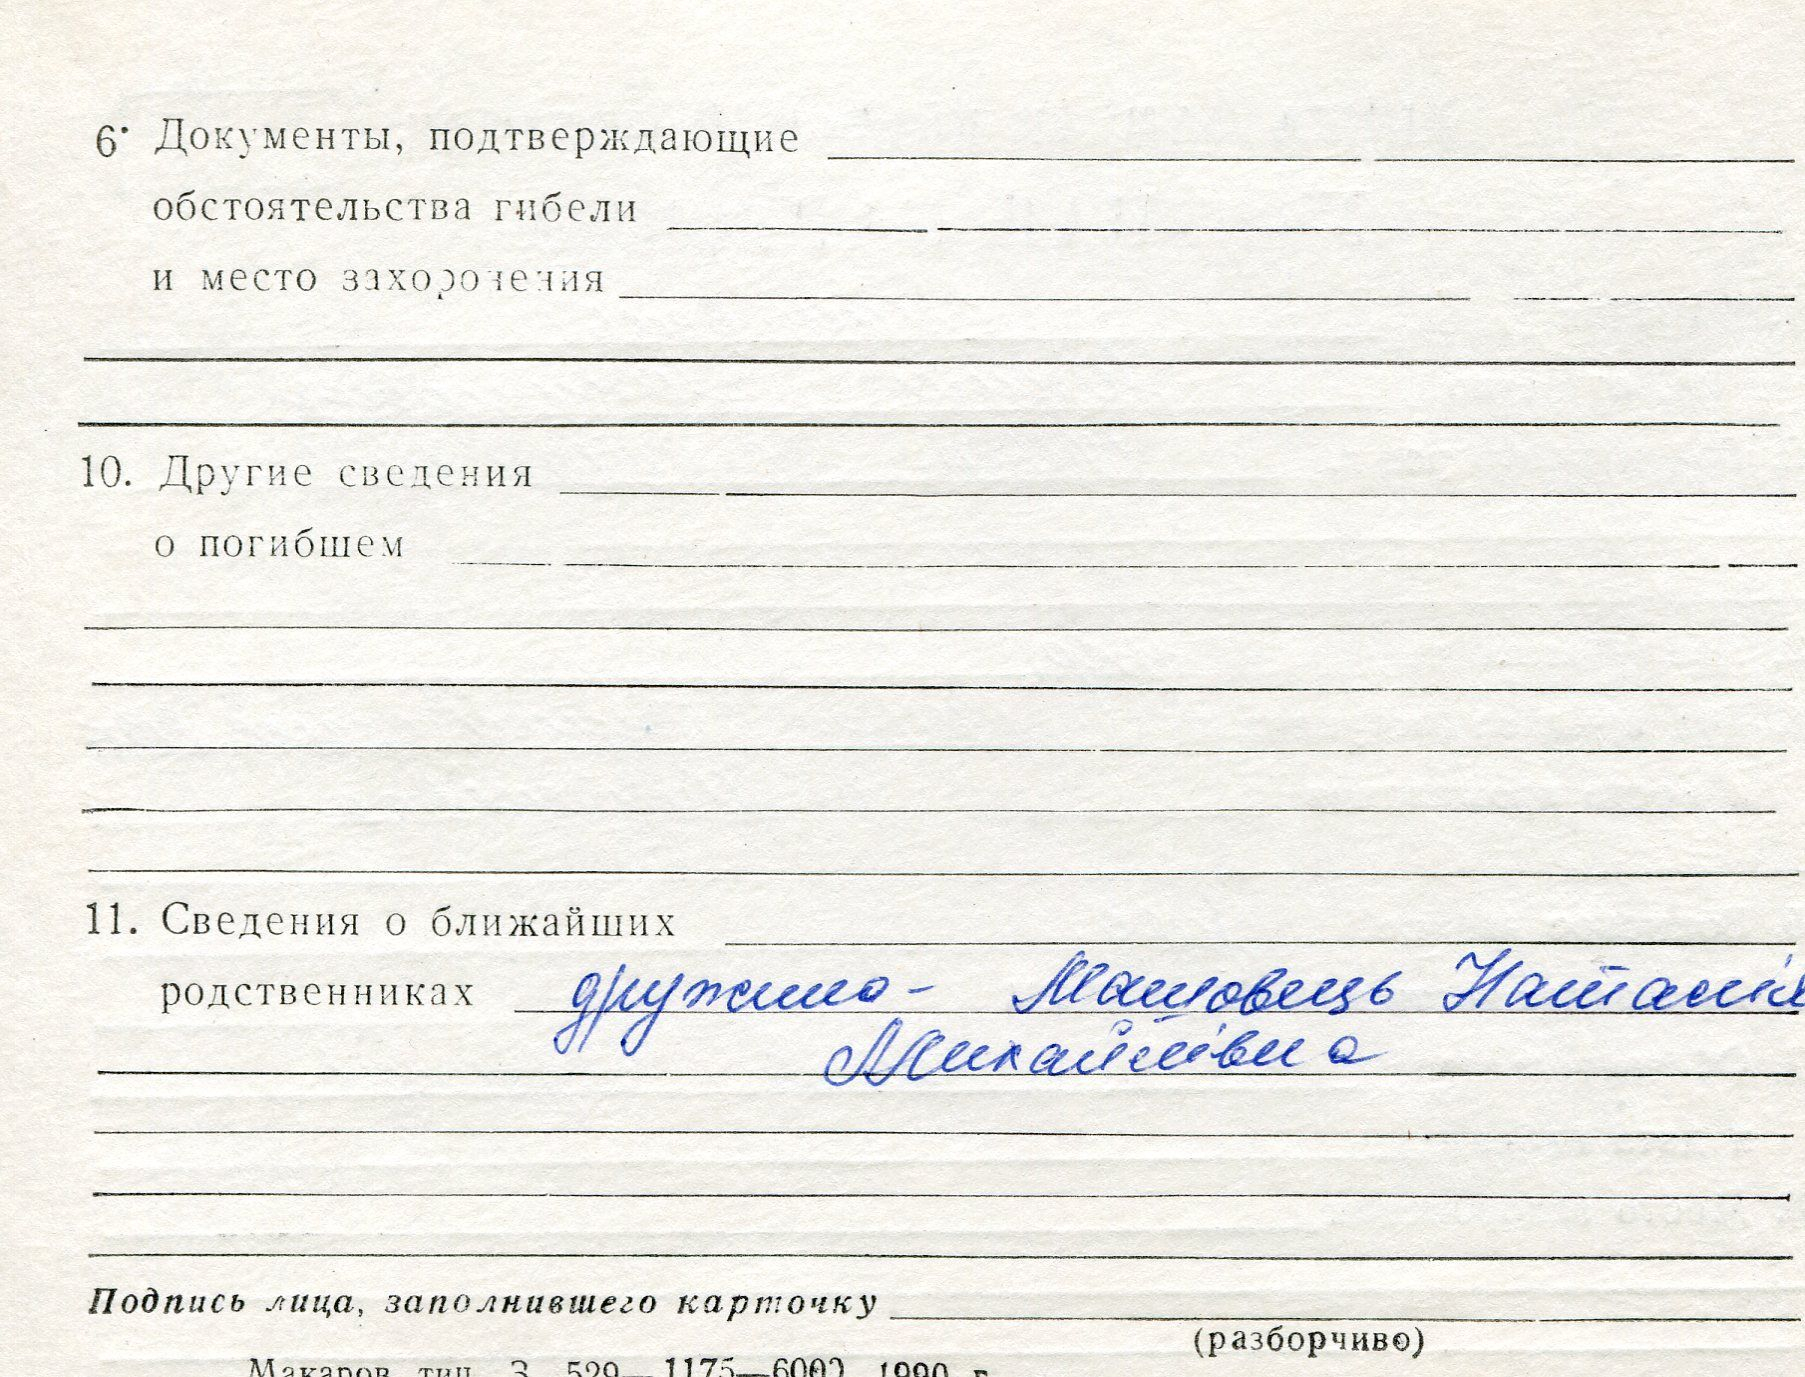 6. Документы, подтверждающие
обстоятельства гибели
и место захоронения
10. Другие сведения
о погибшем
11. Сведения о ближайших
родственниках дружина - Наталія
Михайлівна
Подпись лица, заполнившего карточку
(разборчиво)
Макаров тип. З. 529—1175—6000 1990 г.